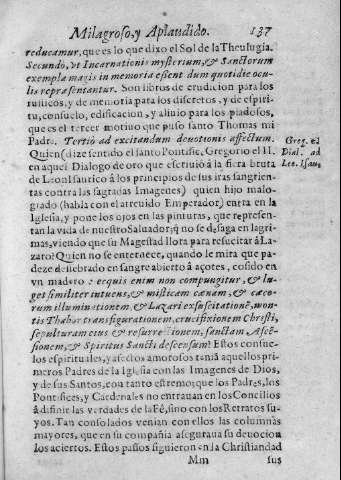 Milagroso, y Aplaudido. 137
reducamur, que es lo que dixo el Sol de la Theulugia.
Secundo, vt Incarnationis mysterium, & Sanctorum
exempla magis in memoria essent dum quotidie ocu-
lis repræsentantur. Son libros de erudicion para los
rusticos, y de memoria para los discretos, y de espiri-
tu, consuelo, edificacion, y aliuio para los piadosos,
que es el tercer motiuo que puso santo Thomas mi
Padre. Tertio ad excitandum deuotionis affectum.
Quien (dize sentido el santo Pontifice, Gregorio el II.
en aquel Dialogo de oro que escriuiò a la fiera bruta
de Leon Isautico à los principios de sus iras sangrien-
tas contra las sagradas Imagenes) quien hijo malo-
grado (habla con el atreuido Emperador) entra en la
Iglesia, y pone los ojos en las pinturas, que represen-
tan la vida de nuestro Saluador, q̃ no se desaga en lagri-
mas, viendo que su Magestad llora para resucitar à La-
zaro? Quien no se enternece, quando le mira que pa-
deze deshebrado en sangre abierto à açotes, cosido en
vn madero: e rquis enim non compungitur, & lu-
get similiter intuens, & misticam cænam, & cæco-
rum illuminationem, & Lazari exsuscitationẽ, mon-
tis Thabor transfigurationem, crucifixionem Christi,
sepulturam eius & resurrectionem, sanctam Ascẽ-
sionem, & Spiritus Sancti descensum? Estos consue-
los espirituales, y afectos amorosos teniã aquellos primeros
Padres de la Iglesia con las Imagenes de Dios,
y de sus Santos, con tanto estremo; que los Padres, los
Pontifices, y Cardenales no entrauan en los Concilios
à difinir las verdades de la Fè, sino con los Retratos su-
yos. Tan consolados venian con ellos las columnas
mayores, que en su compañia aseguraua su deuocion
los aciertos. Estos passos siguieron en la Christiandad
Mm sus
Greg. el
Dial. ad
Leo. Isau,